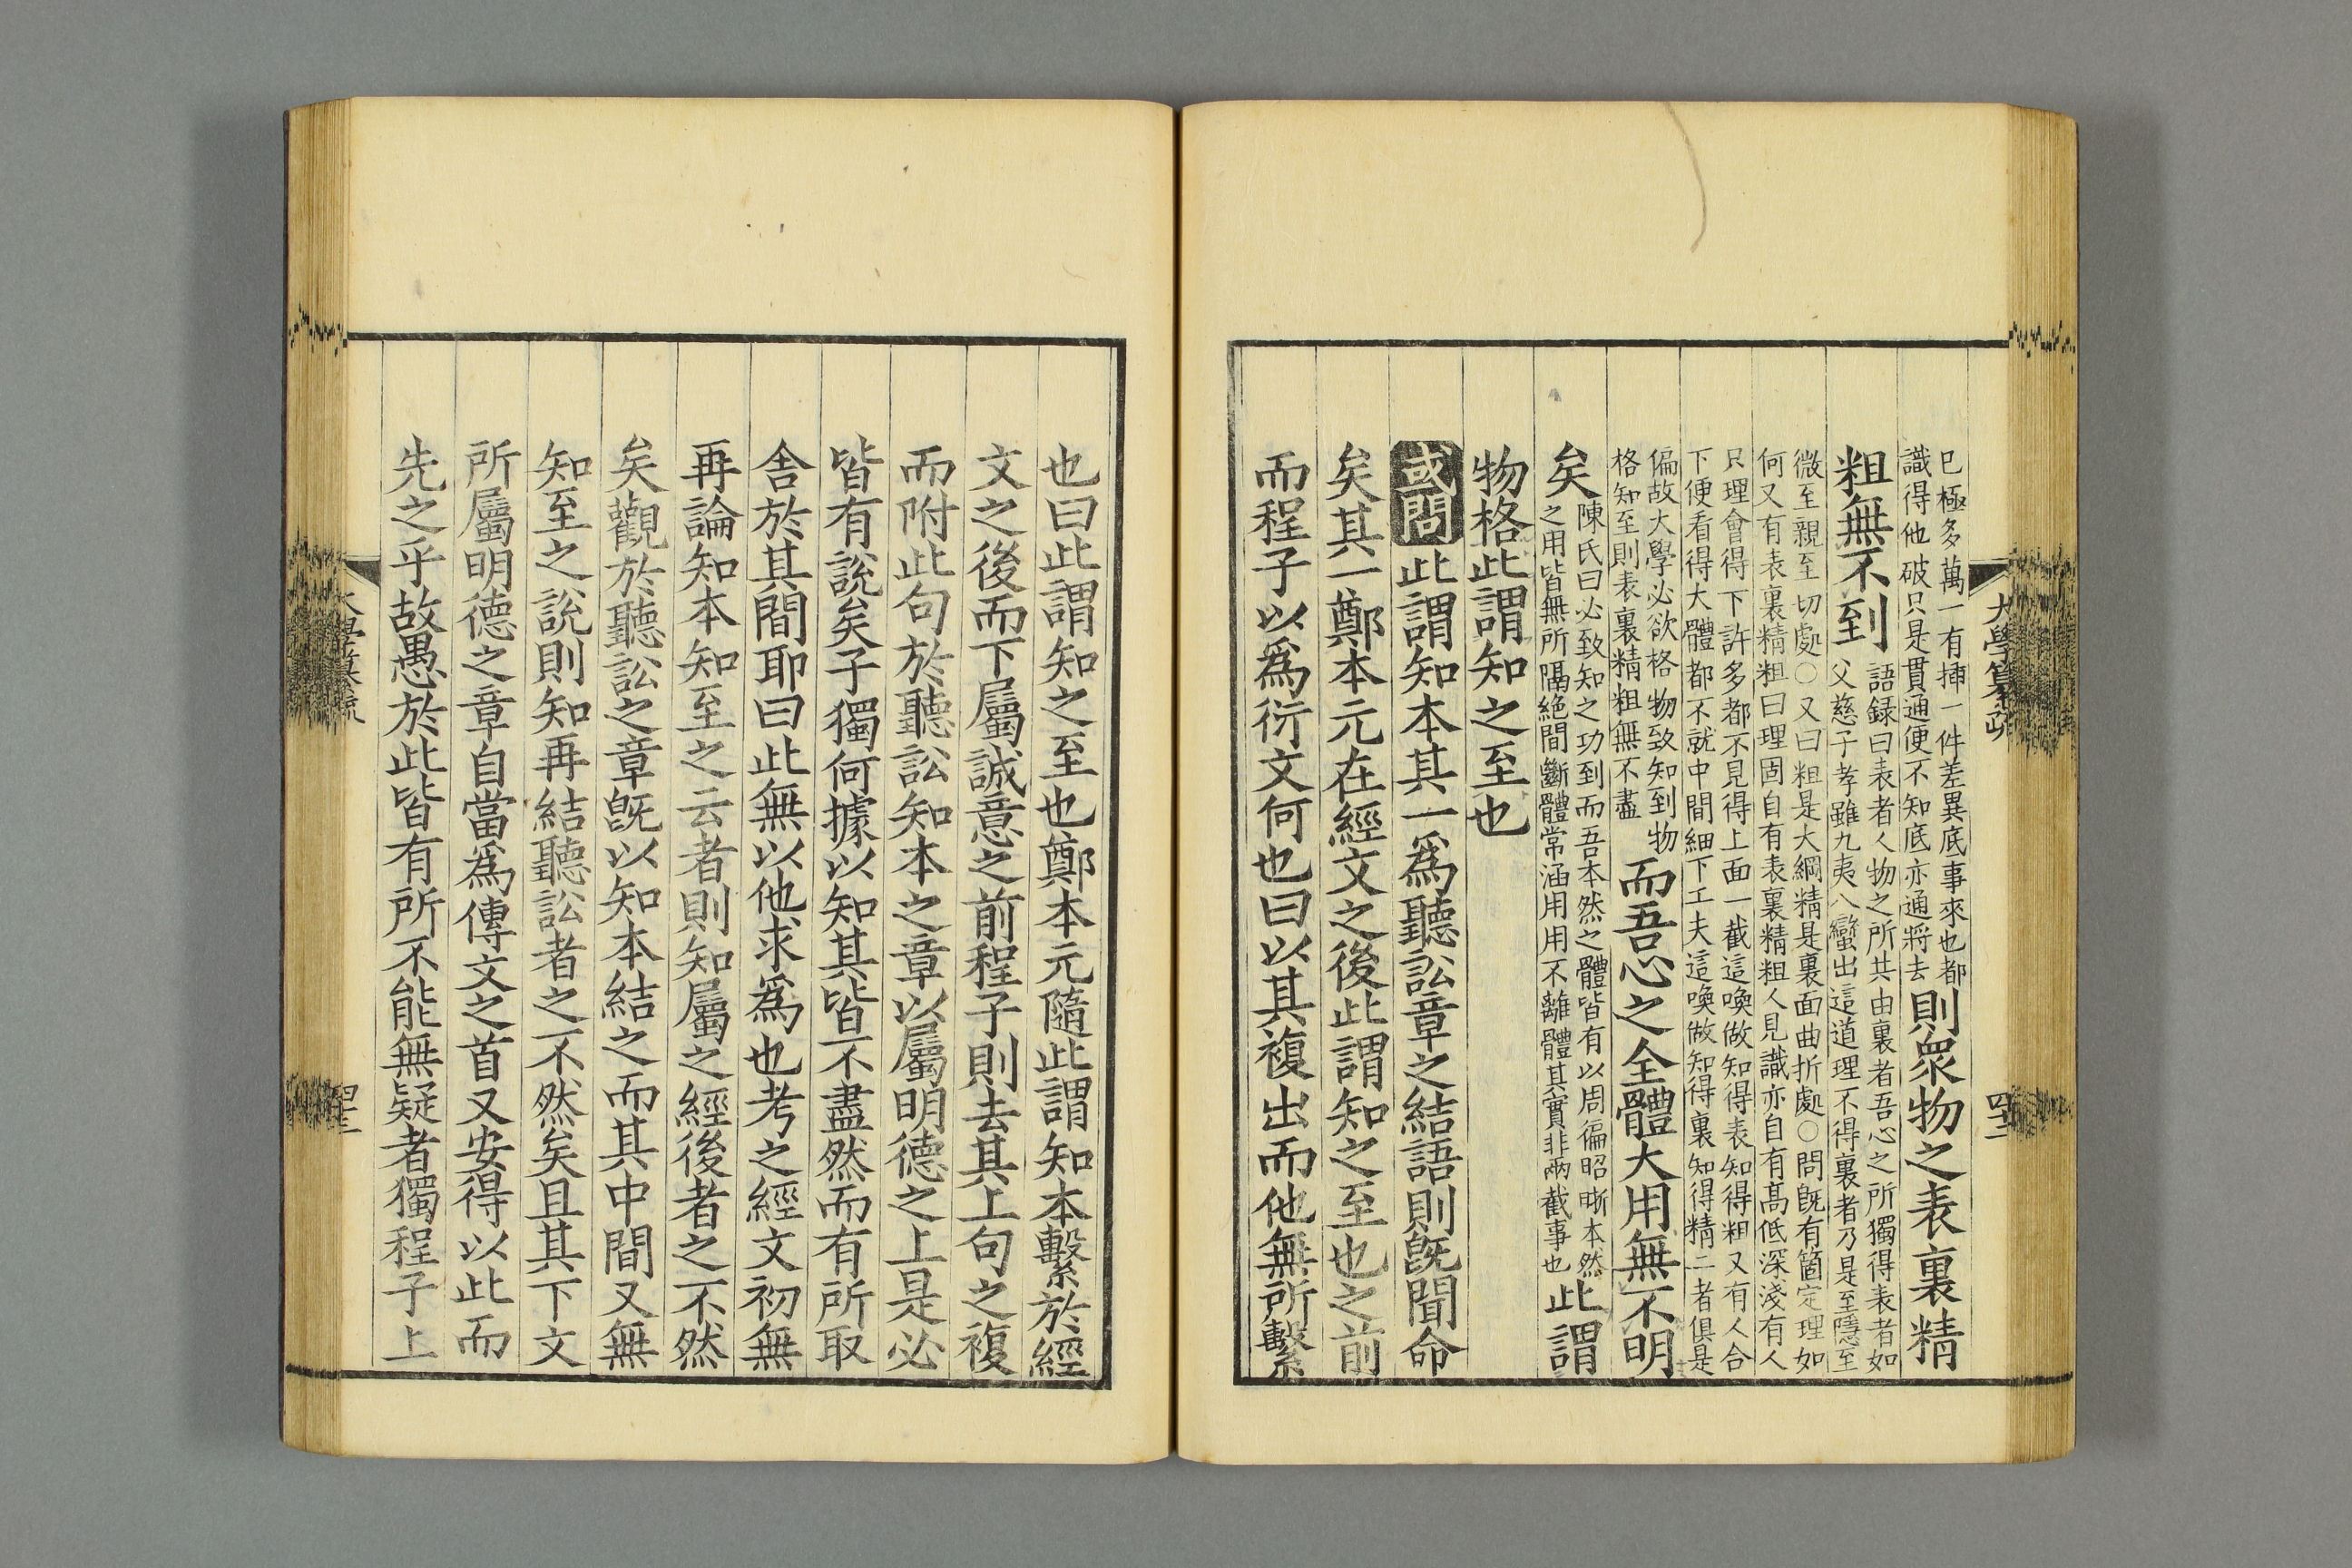 大學纂疏
四十二
已極多萬一有揷一件差異底事來也都
識得他破只是貫通便不知底亦通將去
則衆物之表裏精
粗無不到
語録曰表者人物之所共由裏者吾心之所獨得表者如
父慈子孝雖九夷八蠻出這道理不得裏者乃是至隱至
微至親至切處○又曰粗是大綱精是裏面曲折處○問旣有箇定理如
何又有表裏精粗曰理固自有表裏精粗人見識亦自有髙低深淺有人
只理會得下許多都不見得上面一截這喚做知得表知得粗又有人合
下便看得大體都不就中間細下工夫這喚做知得裏知得精二者俱是
偏故大學必欲格物致知到物
格知至則表裏精粗無不盡
而吾心之全體大用無不明
矣
陳氏曰必致知之功到而吾本然之體皆有以周徧昭晣本然
之用皆無所隔絶間斷體常涵用用不離體其實非兩截事也
此謂
物格此謂知之至也
或問此謂知本其一爲聽訟章之結語則旣聞命
矣其一鄭本元在經文之後此謂知之至也之前
而程子以爲衍文何也曰以其複出而他無所繫
也曰此謂知之至也鄭本元隨此謂知本繫於經
文之後而下屬誠意之前程子則去其上句之複
而附此句於聽訟知本之章以屬明德之上是必
皆有說矣子獨何據以知其皆不盡然而有所取
舎於其間耶曰此無以他求爲也考之經文初無
再論知本知至之云者則知屬之經後者之不然
矣觀於聽訟之章旣以知本結之而其中間又無
知至之說則知再結聽訟者之不然矣且其下文
所屬明德之章自當爲傳文之首又安得以此而
先之乎故愚於此皆有所不能無疑者獨程子上
大學纂疏